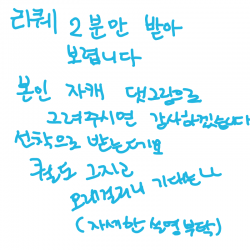 리퀘 2분만 받아
보렵니다
본인 자캐 댓그림으로
그려주시면 감사하겠습니다
선착으로 받는데요
퀄도 그지고
오래걸리니 기대는 ㄴㄴ
(자세한 설명 부탁)